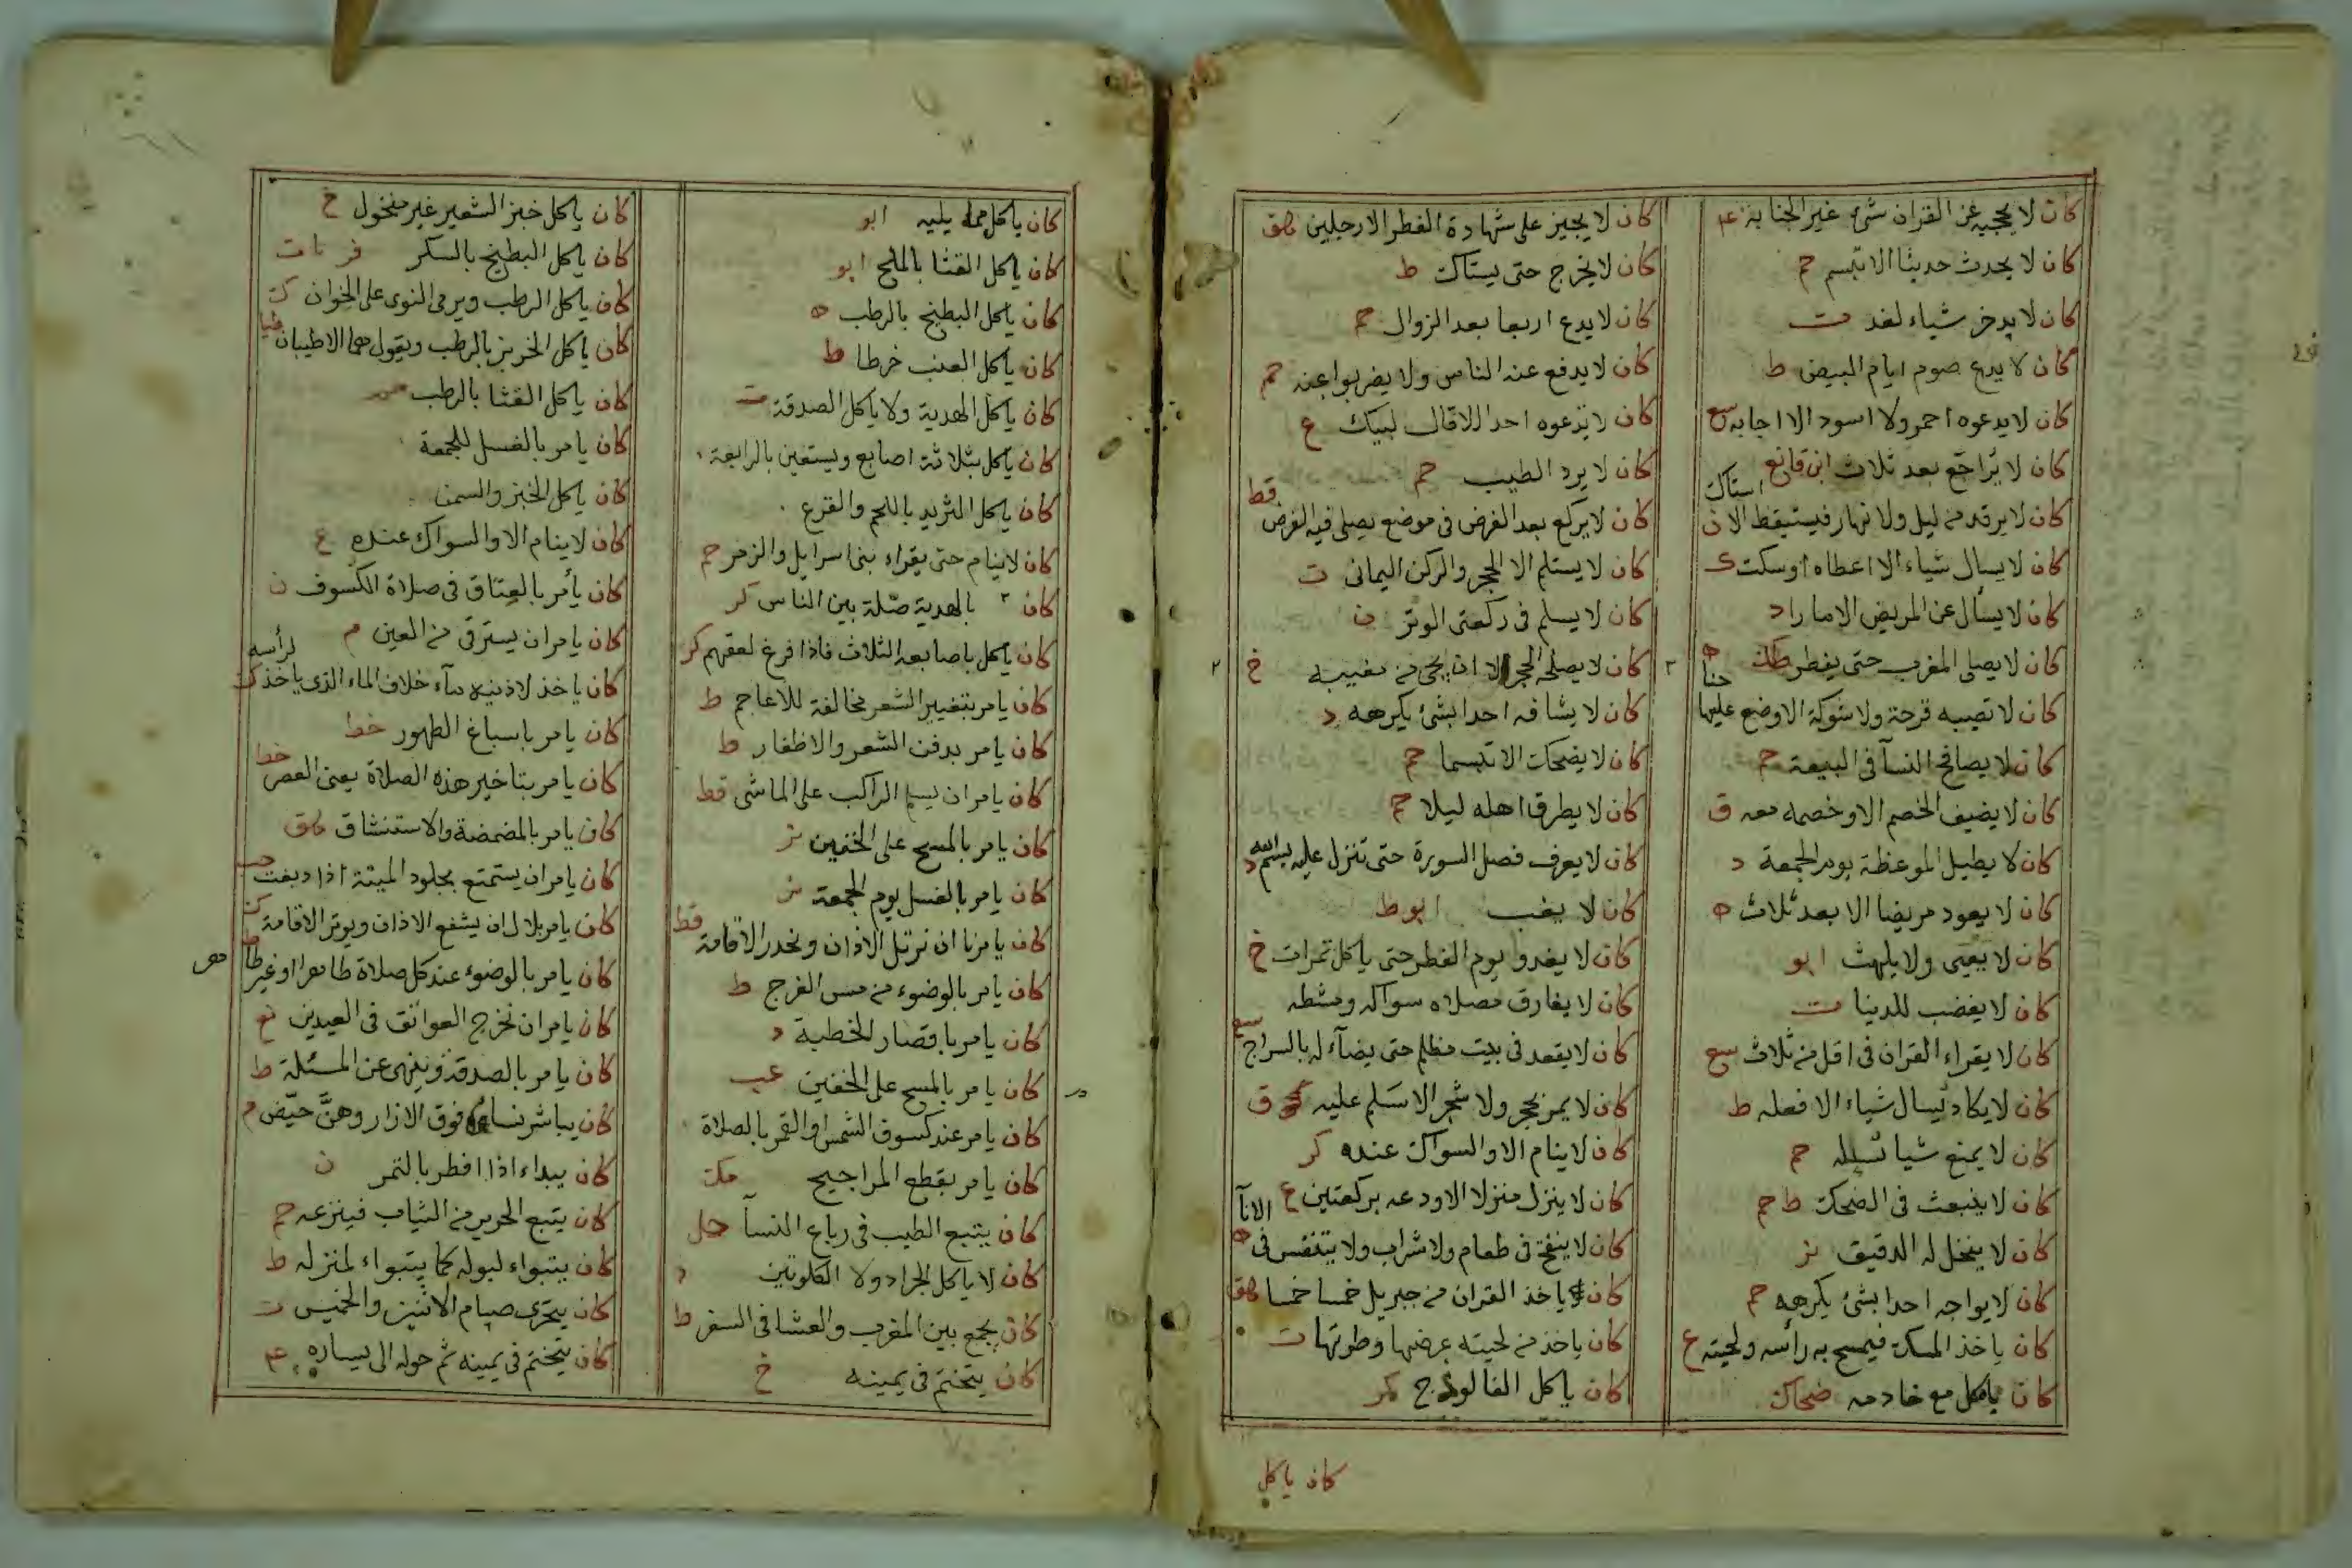 كان لا يحجبه عن القران شئ غير الجنابة عم
كان لا يحدث حديثا الا تبسم حم
كان لا يدخر شياء لغد ت
كان لا يدع صوم ايام البيض ط
كان لا يدعوه احمر ولا اسود الا اجابه سع
كان لا يراجع بعد ثلاث ابن قانع
كان لا يرقد من ليل ولا نهار فيستيقظ الا ن استاك
كان لا يسال شياء الا اعطاه اوسكت ك
كان لا يسأل عن المريض الا مارا د
كان لا يصلى المغرب حتى يفطر طك
كان لا تصيبه قرحة ولا شوكة الا وضع عليها حنا ه
كان لا يصافح النسآ فى البيعة حم
كان لا يضيف الخصم الا وخصمه معه ق
كان لا يطيل الموعظة يوم الجمعة د
كان لا يعود مريضا الا بعد ثلاث ه
كان لا يعيى ولا يلهث ابو
كان لا يغضب للدنيا ت
كان لا يقراء القران فى اقل من ثلاث سع
كان لا يكاد يسال شياء الا فعله ط
كان لا يمنع شيا يسئله حم
كان لا ينبعث فى الضحك ط حم
كان لا ينخل له الدقيق
كان لا يواجه احدا بشئ يكرهه حم
كان ياخذ المسك فيمسح به رأسه ولحيته ع
كان ياكل مع خادمه ضحاك
كان لا يجيز على شهادة الفطر الا رجلين هق
كان لا يخرج حتى يستاك ط
كان لا يدع اربعا بعد الزوال حم
كان لا يدفع عنه الناس ولا يضربوا عنه حم
كان لا يدعوه احد الا قال لبيك ع
كان لا يرد الطيب حم
كان لا يركع بعد الفرض فى موضع يصلى فيه الفرض قط
كان لا يستلم الا الحجر والركن اليمانى ت
كان لا يسلم فى ركعتى الوتر ن
كان لا يصلى الا ان يجئ من مغيبه خ
كان لا يشافه احدا بشئ يكرهه د
كان لا يضحك الا تبسما حم
كان لا يطرق اهله ليلا حم
كان لا يعرف فصل السورة حتى تنزل عليه بسم الله د
كان لا يغب ابو ط
كان لا يغدو يوم الفطر حتى ياكل تمرات خ
كان لا يفارق مصلاه سواكه ومشطه
كان لا يقعد فى بيت مظلم حتى يضآء له بالسراج سع
كان لا يمر بحجر ولا شجر الا سلم عليه ق
كان لا ينام الا والسواك عنده كر
كان لا ينزل منزلا الا ودعه بركعتين ع
كان لا ينفخ فى طعام ولا شراب ولا يتنفس فى الانآ ه
كان ياخذ القران من جبريل خمسا خمسا هق
كان ياخذ من لحيته عرضها وطولها ت
كان ياكل الفالوذج كر
كان ياكل
كان ياكل مما يليه ابو
كان ياكل القثا بالملح ابو
كان ياكل البطيخ بالرطب ه
كان ياكل العنب خرطا ط
كان ياكل الهدية ولا ياكل الصدقة ت
كان ياكل بثلاثة اصابع ويستعين بالرابعة
كان ياكل الثريد باللحم والقرع
كان لا ينام حتى يقراء بنى اسرايل والزمر حم
كان بالهدية صلة بين الناس كر
كان ياكل باصابعه الثلاث فاذا فرغ لعقهم كر
كان يامر بتغيير الشعر مخالفة للاعاجم ط
كان يامر بدفن الشعر والاظفار ط
كان يامر ان يسلم الراكب على الماشى قط
كان يامر بالمسح على الخفين
كان يامر بالغسل يوم الجمعة
كان يامرنا ان نرتل الاذان ونحدر الاقامة قط
كان يامر بالوضوء من مس الفرج ط
كان يامر باقصار الخطبة د
كان يامر بالمسح على الخفين عب
كان يامر عند كسوف الشمس والقمر بالصلاة
كان يامر بقطع المراجيح مكت
كان يتبع الطيب فى رباع النسآ حل
كان لا ياكل الجراد ولا الكلوتين د
كان يجمع بين المغرب والعشا فى السفر ط
كان يتختم فى يمينه خ
كان ياكل خبز الشعير غير منخول خ
كان ياكل البطيخ بالسكر
كان ياكل الرطب ويرمى النوى على الخوان ك
كان ياكل الخربز بالرطب ويقول هما الاطيبان طيا
كان ياكل القثا بالرطب
كان يامر بالغسل للجمعة
كان ياكل الخبز والسمن
كان لا ينام الا والسواك عنده ع
كان يأمر بالعتاق فى صلاة الكسوف ن
كان يامر ان يسترقى من العين م
كان ياخذ لاذنيه مآء خلاف الماء الذى ياخذ لرأسه ك
كان يامر باسباغ الطهور خط
كان يامر بتاخير هذه الصلاة يعنى العصر خط
كان يامر بالمضمضة والاستنشاق هق
كان يامر ان يستمتع بجلود الميتة اذا دبغت حب
كان يامر بلال ان يشفع الاذان ويوتر الاقامة
كان يامر بالوضوء عند كل صلاة طاهرا او غير طا هر
كان يامر ان نخرج العواتق فى العيدين
كان يامر بالصدقة وينهى عن المسئلة ط
كان يباشر نساه فوق الازار وهنّ حيّض م
كان يبداء اذا افطر بالتمر ن
كان يتبع الحرير من الثياب فينزعه حم
كان يتبواء لبوله كما يتبواء لمنزله ط
كان يتحرى صيام الاثنين والخميس ت
كان يتختم فى يمينه ثم حوله الى يساره